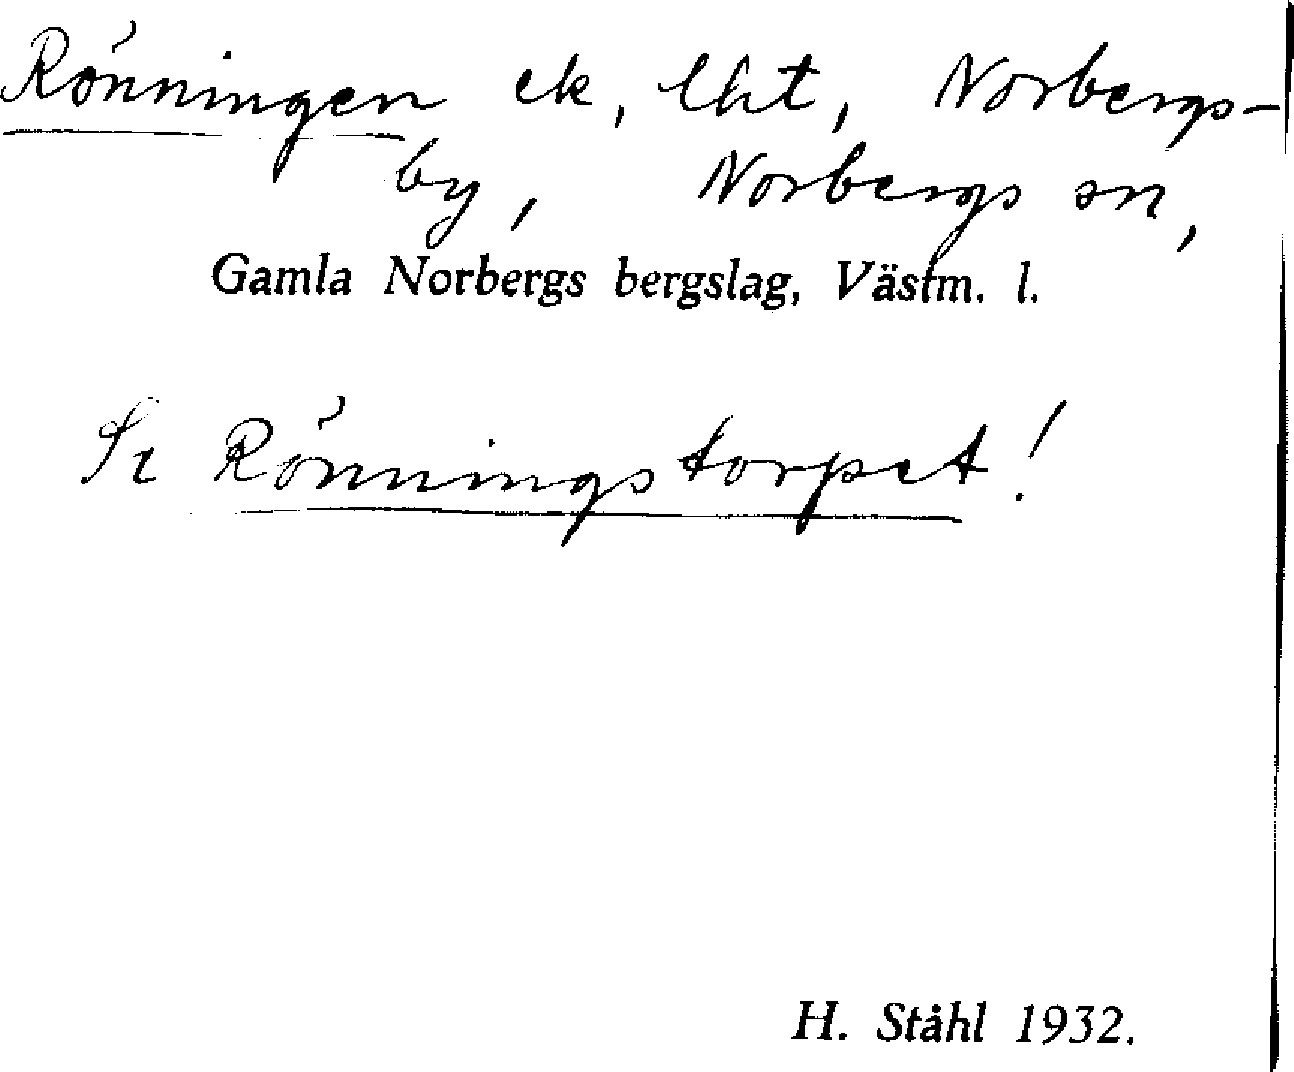 Rönningen ek, lht, Norbergs-
by, Norbergs sn,
Gamla Norbergs bergslag, Västm. l.
Se Rönningstorpet!
H. Ståhl 1932.